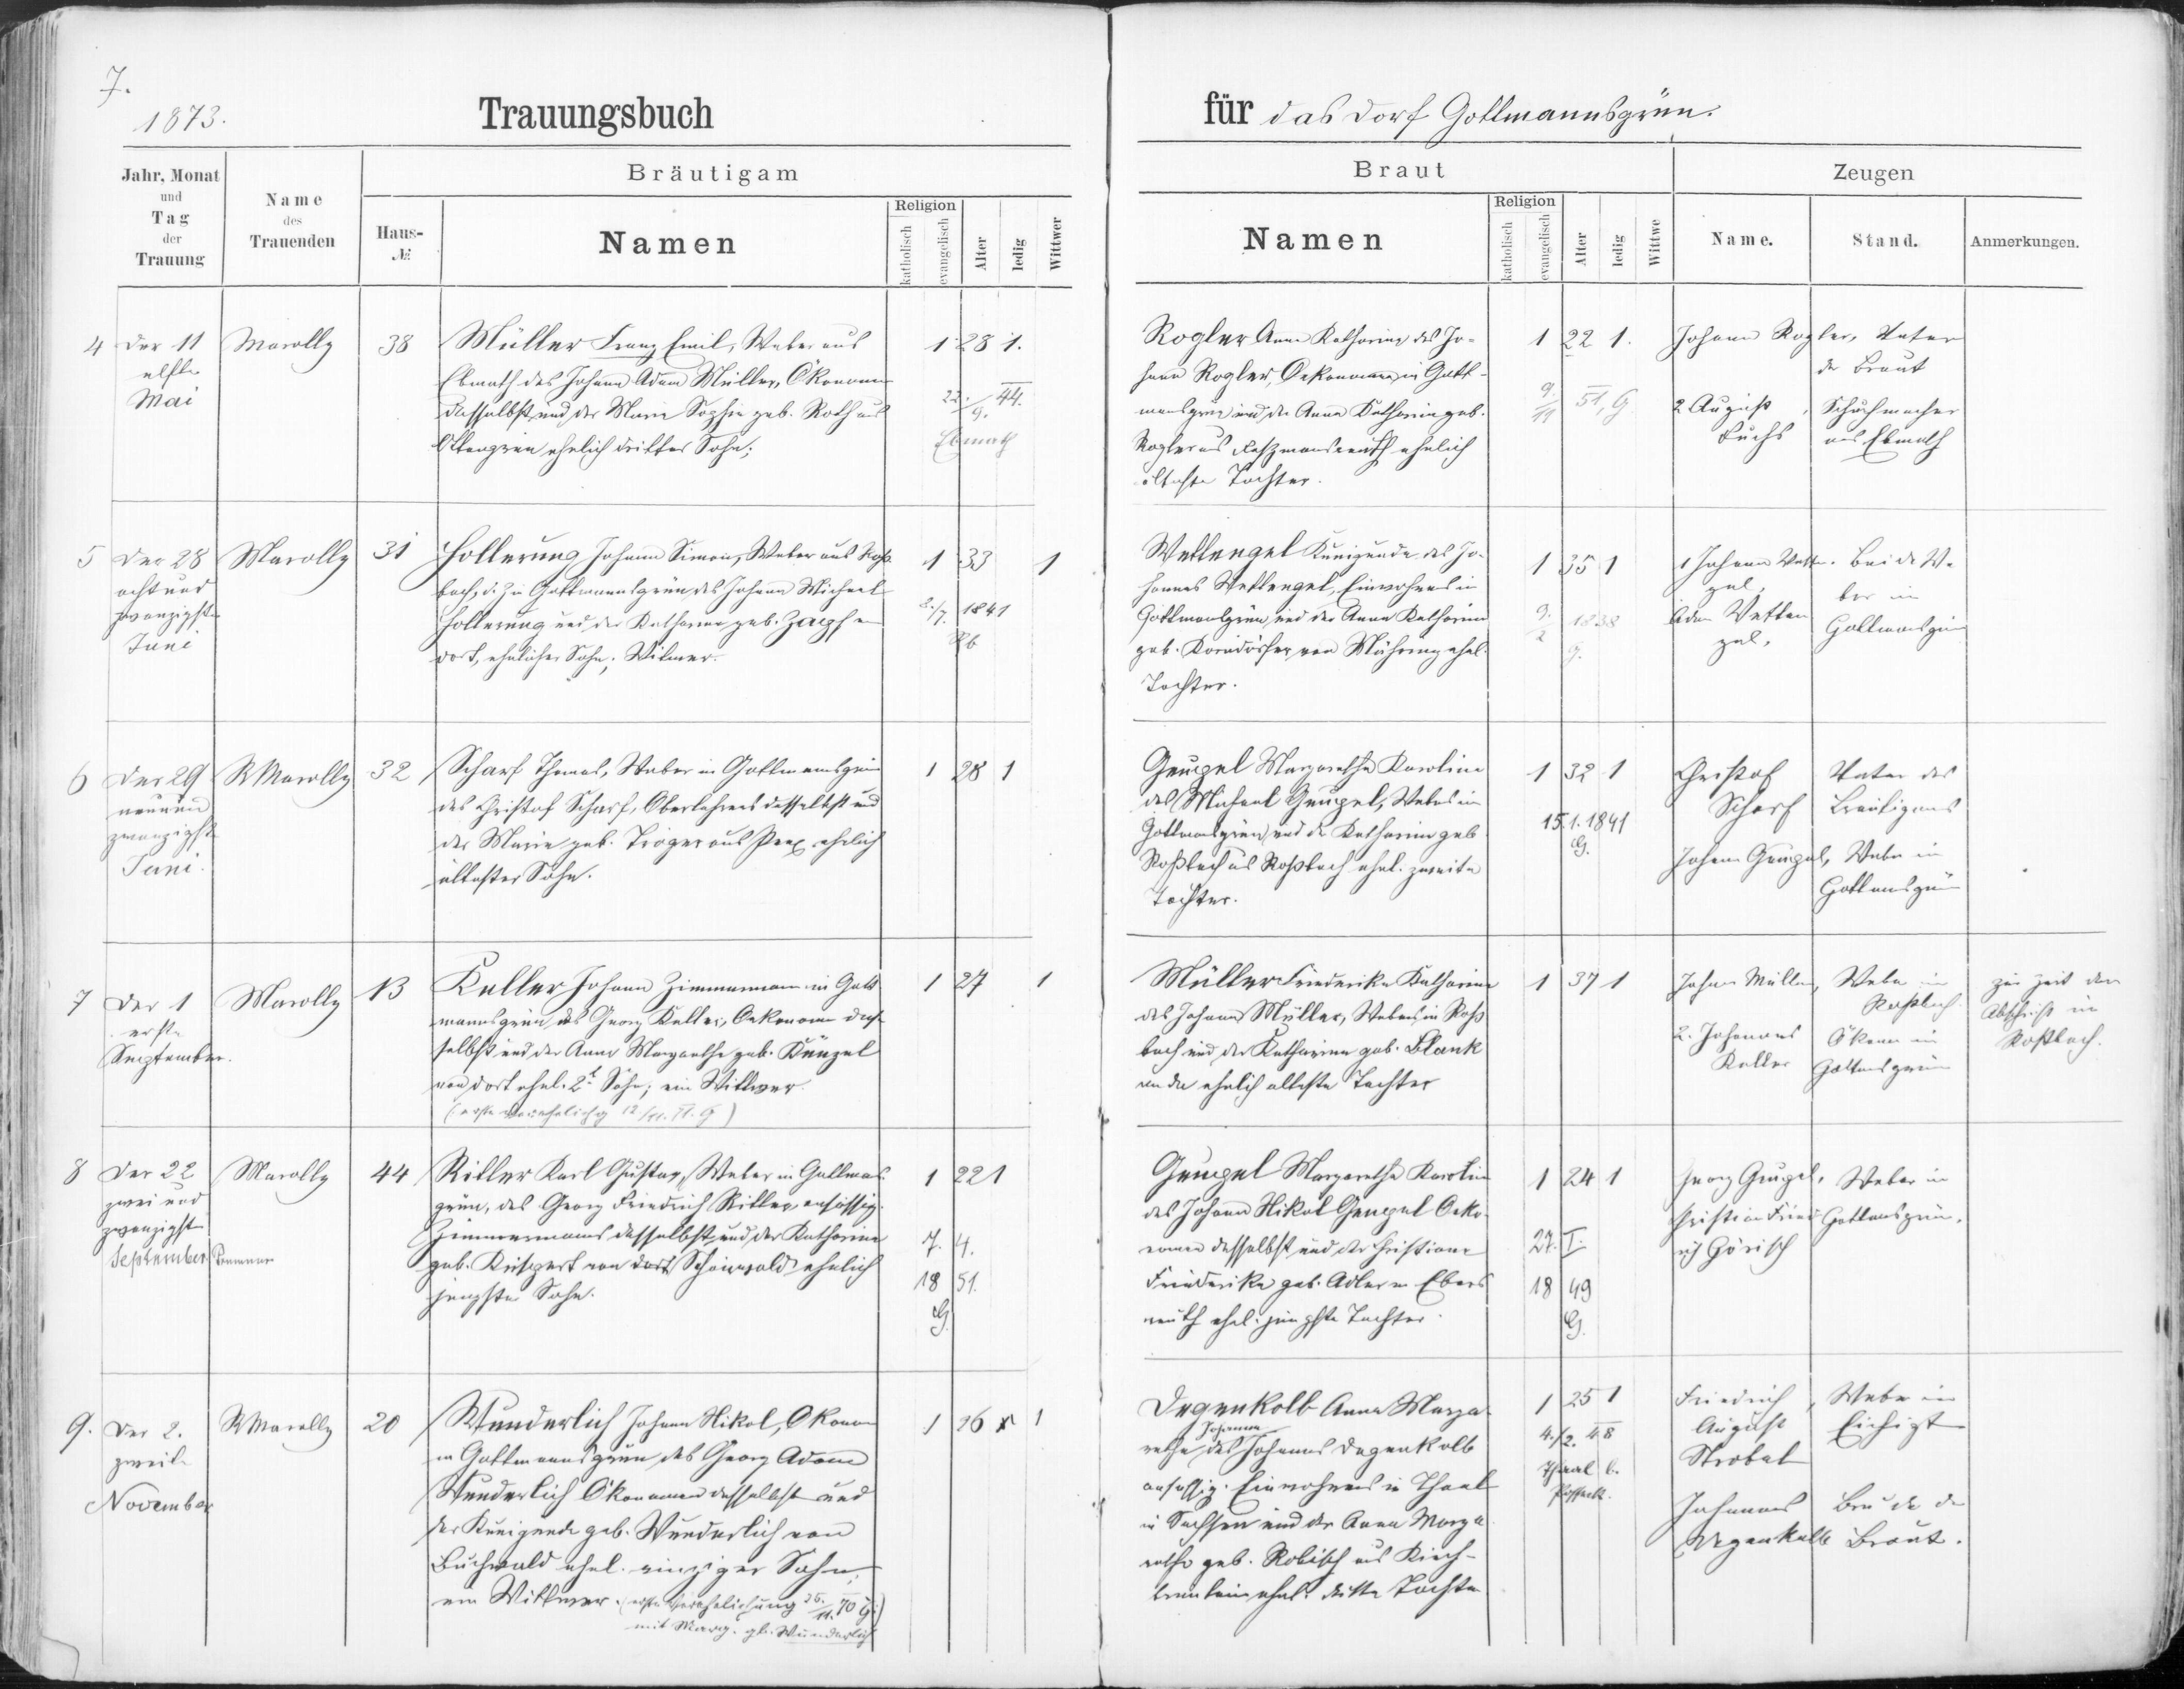 7.
1873.
Trauungsbuch
für das Dorf Gottmannsgrün.
Jahr, Monat
und
Tag
der
Trauung
Name
des
Trauenden
Bräutigam
Haus-
№
Namen
Religion
katholisch
evangelisch
Alter
ledig
Wittwer
Braut
Namen
Religion
katholisch
evangelisch
Alter
ledig
Wittwe
Zeugen
Name.
Stand.
Anmerkungen.
4 Der 11
elfte
Mai
Marolly
38
Müller Franz Emil, Weber aus
Ebmath des Johann Adam Müller, Ökonomen
daselbst und der Marie Sophie geb. Roth aus
ehelich dritter Sohn;
1 28 1.
22./9. 44.
Ebmath
Rogler Anna Katharina des Jo-
hann Rogler, Oekonomen in Gott-
mansgrün und der Anna Katharina geb.
Rogler aus ehelich
älteste Tochter.
1 22 1.
9/11 51, G
Johann Rogler, Vater
der Braut
2 August
Fuchs
Schuhmacher
aus Ebmath
5 Der 28
acht und
zwanzigste
Juni
Marolly
31
Hollerung Johann Simon, Weber aus Roß-
bach, d. Z. in Gottmannsgrün, des Johann Michael
Hollerung und der Katharina geb. Zapf von
dort, ehelicher Sohn; Witwer.
1 33 1
8./7. 1841
Rb
Wettengel Kunigunda des Jo-
hannes Wettengel, Einwohners in
Gottmansgrün und der Anna Katharina
geb. Korndörfer von Mähring ehel.
Tochter.
1 35 1
9./2 1838
G.
1 Johann Wetten-
gel,
Adam Wetten
gel,
Beide We-
ber in
Gottmansgrün
6 Der 29
neunund
zwanzigste
Juni.
R Marolly
32
Scharf Thomas, Weber in Gottmannsgrün
des Christof Scharf, Oberlehrers daselbst und
der Marie geb. Tröger aus Prex ehelich
ältester Sohn.
1 28 1
Geupel Margaretha Karolina
des Michael Geupel, Webers in
Gottmansgrün und der Katharina geb
Roßbach aus Roßbach ehel. zweite
Tochter.
1 32 1
15.1.1841
G.
Christof
Scharf
Vater des
Bräutigams
Johann Geupel, Weber in
Gottmansgrün
7 Der 1
erste
September.
Marolly
13
Keller Johann Zimmermann in Gott-
mannsgrün des Georg Keller, Oekonom da-
selbst und der Anna Margaretha geb. Künzel
von dort ehel. 2t Sohn; ein Wittwer.
(erste Verehelichg 12/11. 71. G)
1 27 1
Müller Friederika Katharina
des Johann Müller, Webers in Roß
bach und der Katharina geb. Blank
ehelich älteste Tochter
1 37 1
Johann Müller, Weber in
Roßbach.
2. Johannes
Keller
Ökonom in
Gottmansgrün
zur Zeit der
Abschrift in
Roßbach.
8 Der 22
zwei und
zwanzigste
September
Marolly
44
Ritter Karl Gustav, Weber in Gottmans-
grün, des Georg Friedrich Ritter, ansässig.
Zimmermanns daselbst und der Katharina
geb. von dort Schönwald ehelich
jüngster Sohn.
1 22 1
7. 4.
18 51.
G.
Geupel Margaretha Karolina
des Johann Nikol Geupel Oeko-
nomen daselbst und der Christiana
Friederika geb. Adler in Ebers
reuth ehel. jüngste Tochter.
1 24 1
27. I.
18 49
G.
Georg Geupel,
Christian Fried-
rich Görisch
Weber in
Gottmansgrün.
9. Der 2.
zweite
November
R Marolly
20
Wunderlich Johann Nikol, Ökonom
in Gottmannsgrün des Georg Adam
Wunderlich Ökonomen daselbst und
der Kunigunde geb. Wunderlich von
Buchwald ehel. einziger Sohn,
ein Wittwer. (erste Verehelichung 26./11. 70 G.)
mit Marg. geb. Wunderlich
1 26 1
Degenkolb Anna Marga-
Johanna
retha des Johannes Degenkolb
ansässig. Einwohners in Thaal
in Sachsen und der Anna Marga
retha geb. Robisch aus
ehel. dritte Tochter
1 25 1
4./2. 48
Thaal b.
Posseck.
Friedrich
August
Strobel
Weber in
Eichigt
Johannes
Degenkolb
Bruder der
Braut.